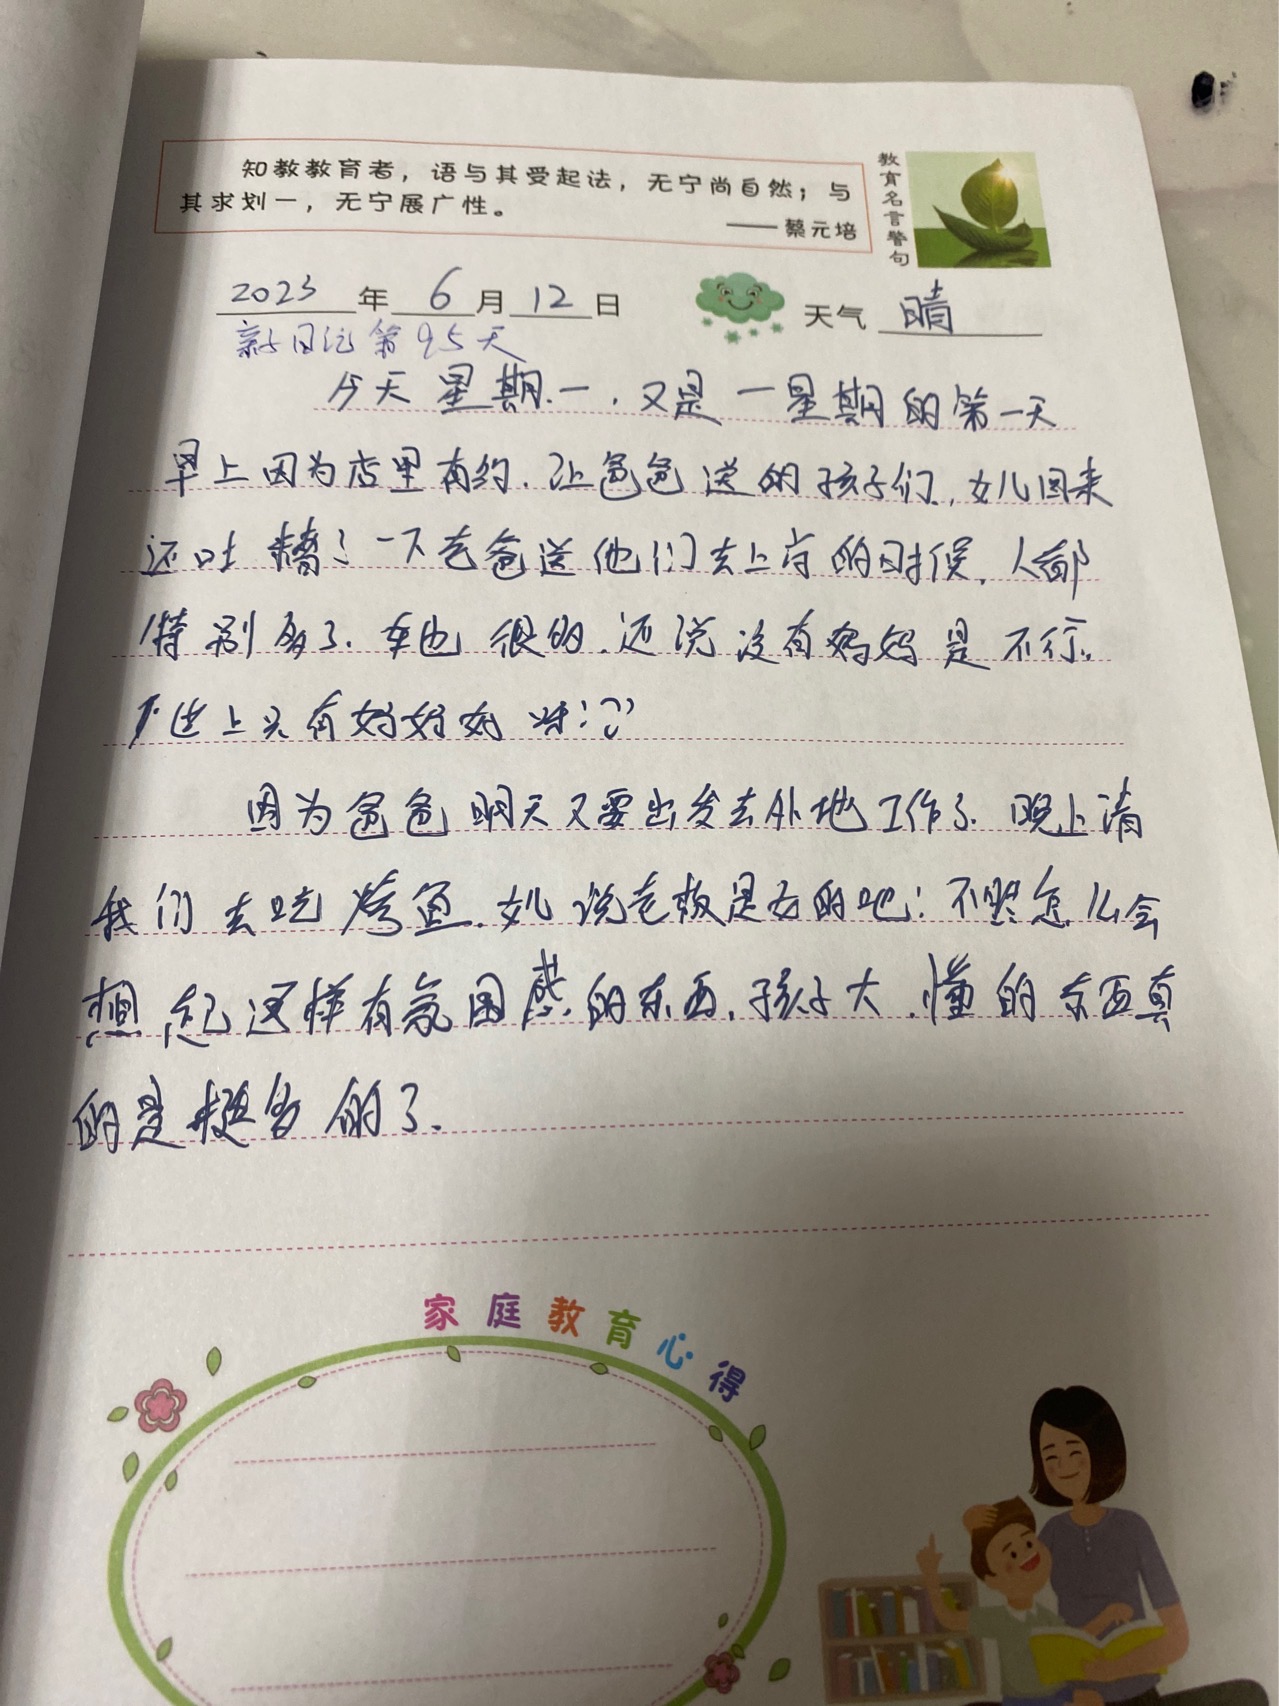 知教教育者，语与其受起法，无宁尚自然；与
其求划一，无宁展广性。
——蔡元培
教育名言警句
2023年6月12日 天气 晴
亲子日记第95天
今天星期一，又是一星期的第一天
早上因为店里有约，让爸爸送的孩子们，女儿回来
还吐糟了一下老爸送他们去上学的时候，人都
特别多了，车也很的，还说没有妈妈是不行。
世上只有妈妈好
因为爸爸明天又要出发去外地工作了，晚上请
我们去吃烤鱼，女儿说老板是女的吧！不然怎么会
想起这样有氛围感的东西，孩子大，懂的东西真
的是挺多的了.
家庭教育心得